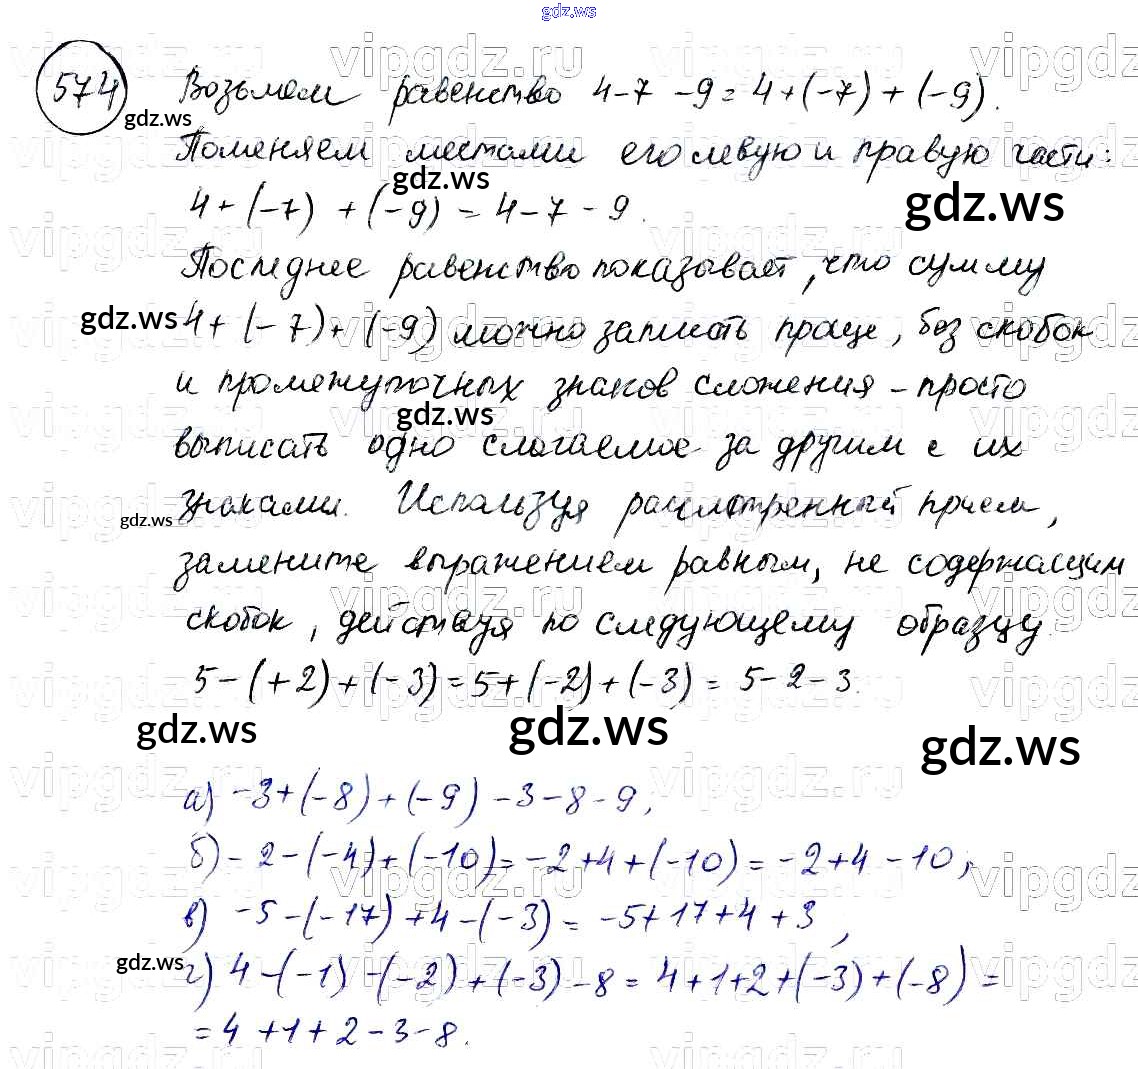 gdz.ws
574 Возьмем равенство 4-7-9=4+(-7)+(-9).
Поменяем местами его левую и правую части:
4+(-7)+(-9)=4-7-9.
Последнее равенство показывает, что сумму
4+(-7)+(-9) можно записать проще, без скобок
и промежуточных знаков сложения - просто
выписать одно слагаемое за другим с их
знаками. Используя рассмотренный прием,
замените выражением равным, не содержащим
скобок, действуя по следующему образцу
5-(+2)+(-3)=5+(-2)+(-3)=5-2-3.
gdz.ws gdz.ws gdz.ws
а) -3+(-8)+(-9)-3-8-9;
б) -2-(-4)+(-10)=-2+4+(-10)=-2+4-10;
в) -5-(-17)+4-(-3)=-5+17+4+3,
г) 4-(-1)-(-2)+(-3)-8=4+1+2+(-3)+(-8)=
=4+1+2-3-8.